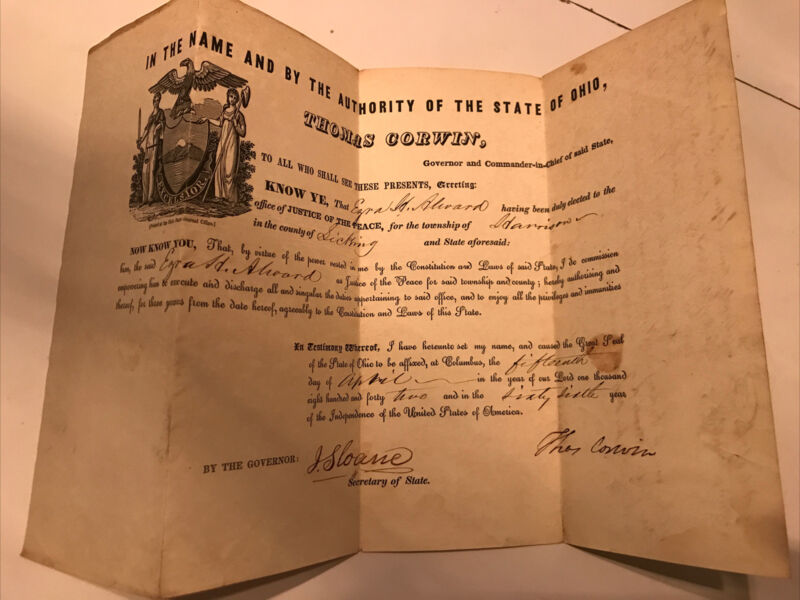 IN THE NAME AND BY THE AUTHORITY OF THE STATE OF OHIO,
THOMAS CORWIN,
Governor and Commander-in-Chief of said State,
TO ALL WHO SHALL SEE THESE PRESENTS, Greeting:
KNOW YE, That Ezra H. Alward having been duly elected to the
office of JUSTICE OF THE PEACE, for the township of Harrison
in the county of Licking and State aforesaid:
EXCELSIOR
NOW KNOW YOU, That, by virtue of the power vested in me by the Constitution and Laws of said State, I do commission
him, the said Ezra H. Alward as Justice of the Peace for said township and county; hereby authorising and
empowering him to execute and discharge all and singular the duties appertaining to said office, and to enjoy all the privileges and immunities
thereof, for three years from the date hereof, agreeably to the Constitution and Laws of this State.
In Testimony Whereof, I have hereunto set my name, and caused the Great Seal
of the State of Ohio to be affixed, at Columbus, the fifteenth
day of April in the year of our Lord one thousand
eight hundred and forty two and in the sixty sixth year
of the Independence of the United States of America.
Thos Corwin
BY THE GOVERNOR: J. Sloane
Secretary of State.